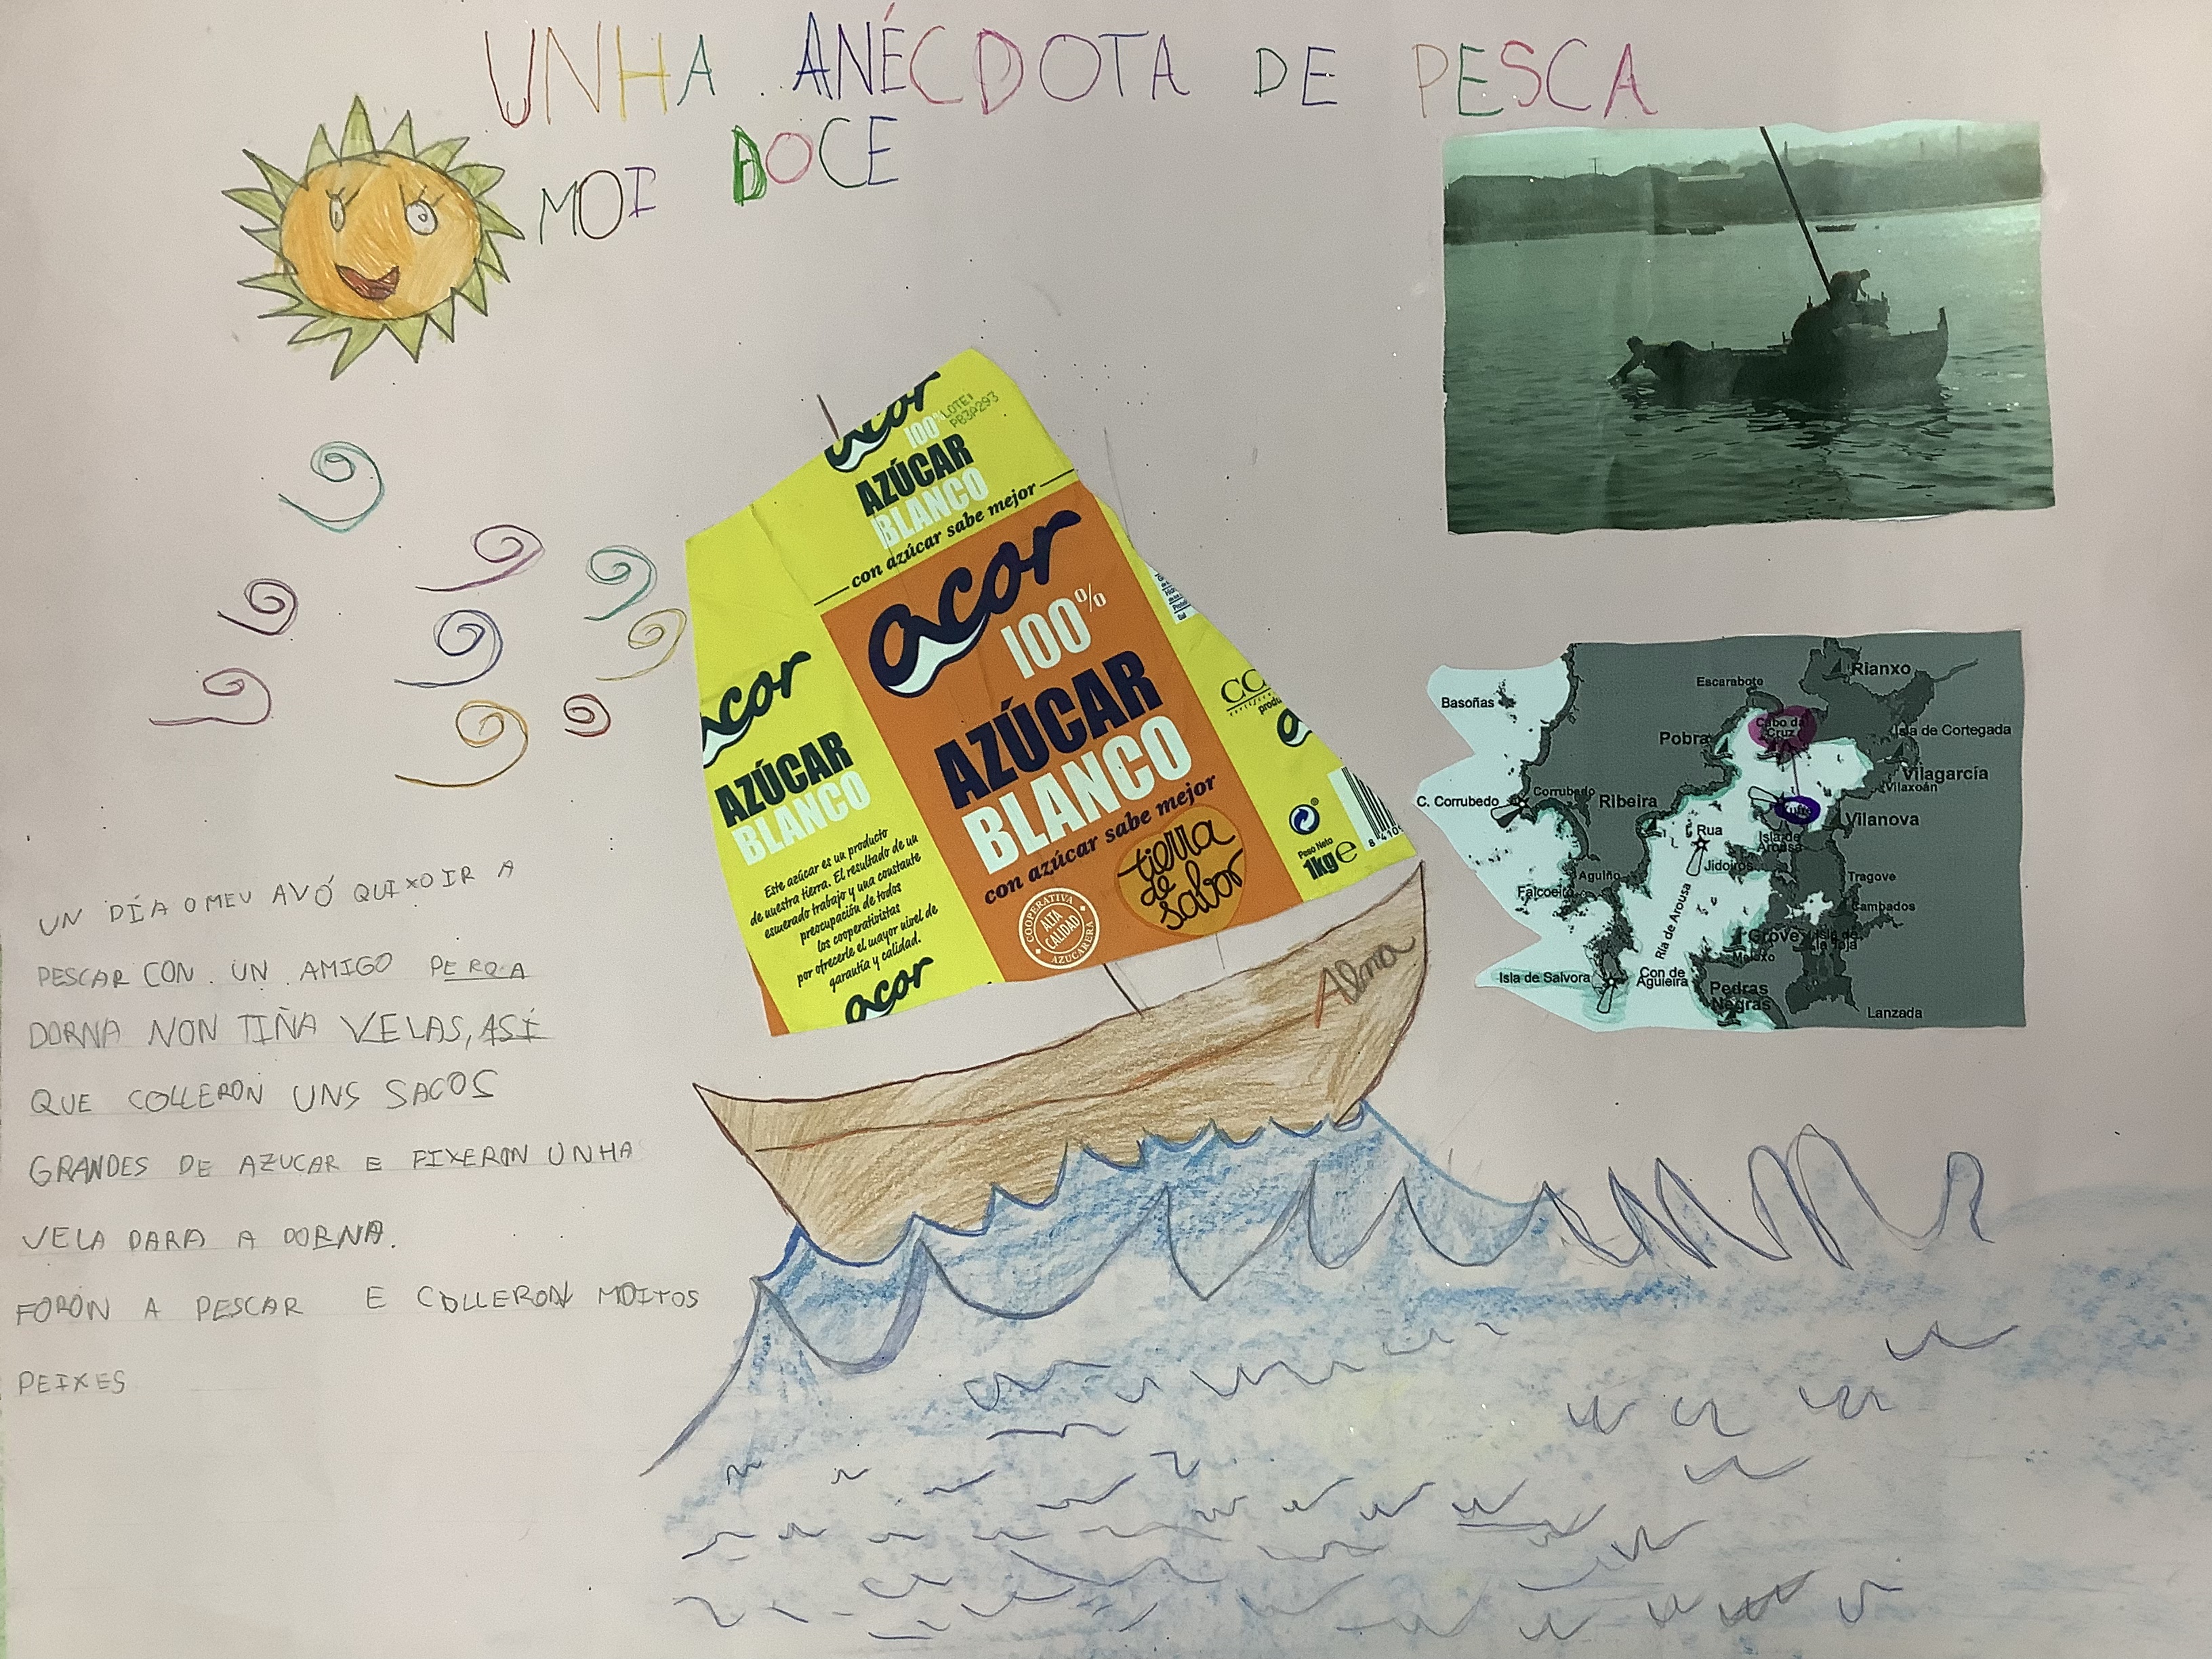 UNHA ANÉCDOTA DE PESCA
MOI DOCE
acor
100%
LOTE:
PB3A293
AZÚCAR
BLANCO
con azúcar sabe mejor
acor
100%
AZÚCAR
BLANCO
con azúcar sabe mejor
tierra
de
sabor
COOPERATIVA
ALTA
CALIDAD
AZUCARERA
acor
AZÚCAR
BLANCO
Este azúcar es un producto
de nuestra tierra. El resultado de un
esmerado trabajo y una constante
preocupación de todos
los cooperativistas
por ofrecerle el mayor nivel de
garantía y calidad.
acor
Peso Neto
1kg e
Alma
UN DÍA O MEU AVÓ QUIXO IR A
PESCAR CON UN AMIGO PERO A
DORNA NON TIÑA VELAS, ASÍ
QUE COLLERON UNS SACOS
GRANDES DE AZUCAR E FIXERON UNHA
VELA PARA A DORNA.
FORON A PESCAR E COLLERON MOITOS
PEIXES
Rianxo
Escarabote
Basoñas
Cabo da
Cruz
Isla de Cortegada
Pobra
Vilagarcía
Vilaxoán
C. Corrubedo
Corrubedo
Ribeira
Xufre
Vilanova
Rua
Isla de
Arousa
Jidoiros
Aguiño
Tragove
Falcoeiro
Cambados
Ría de Arousa
Grove
Isla de
la Toja
Meloxo
Isla de Salvora
Con de
Aguieira
Pedras
Negras
Lanzada